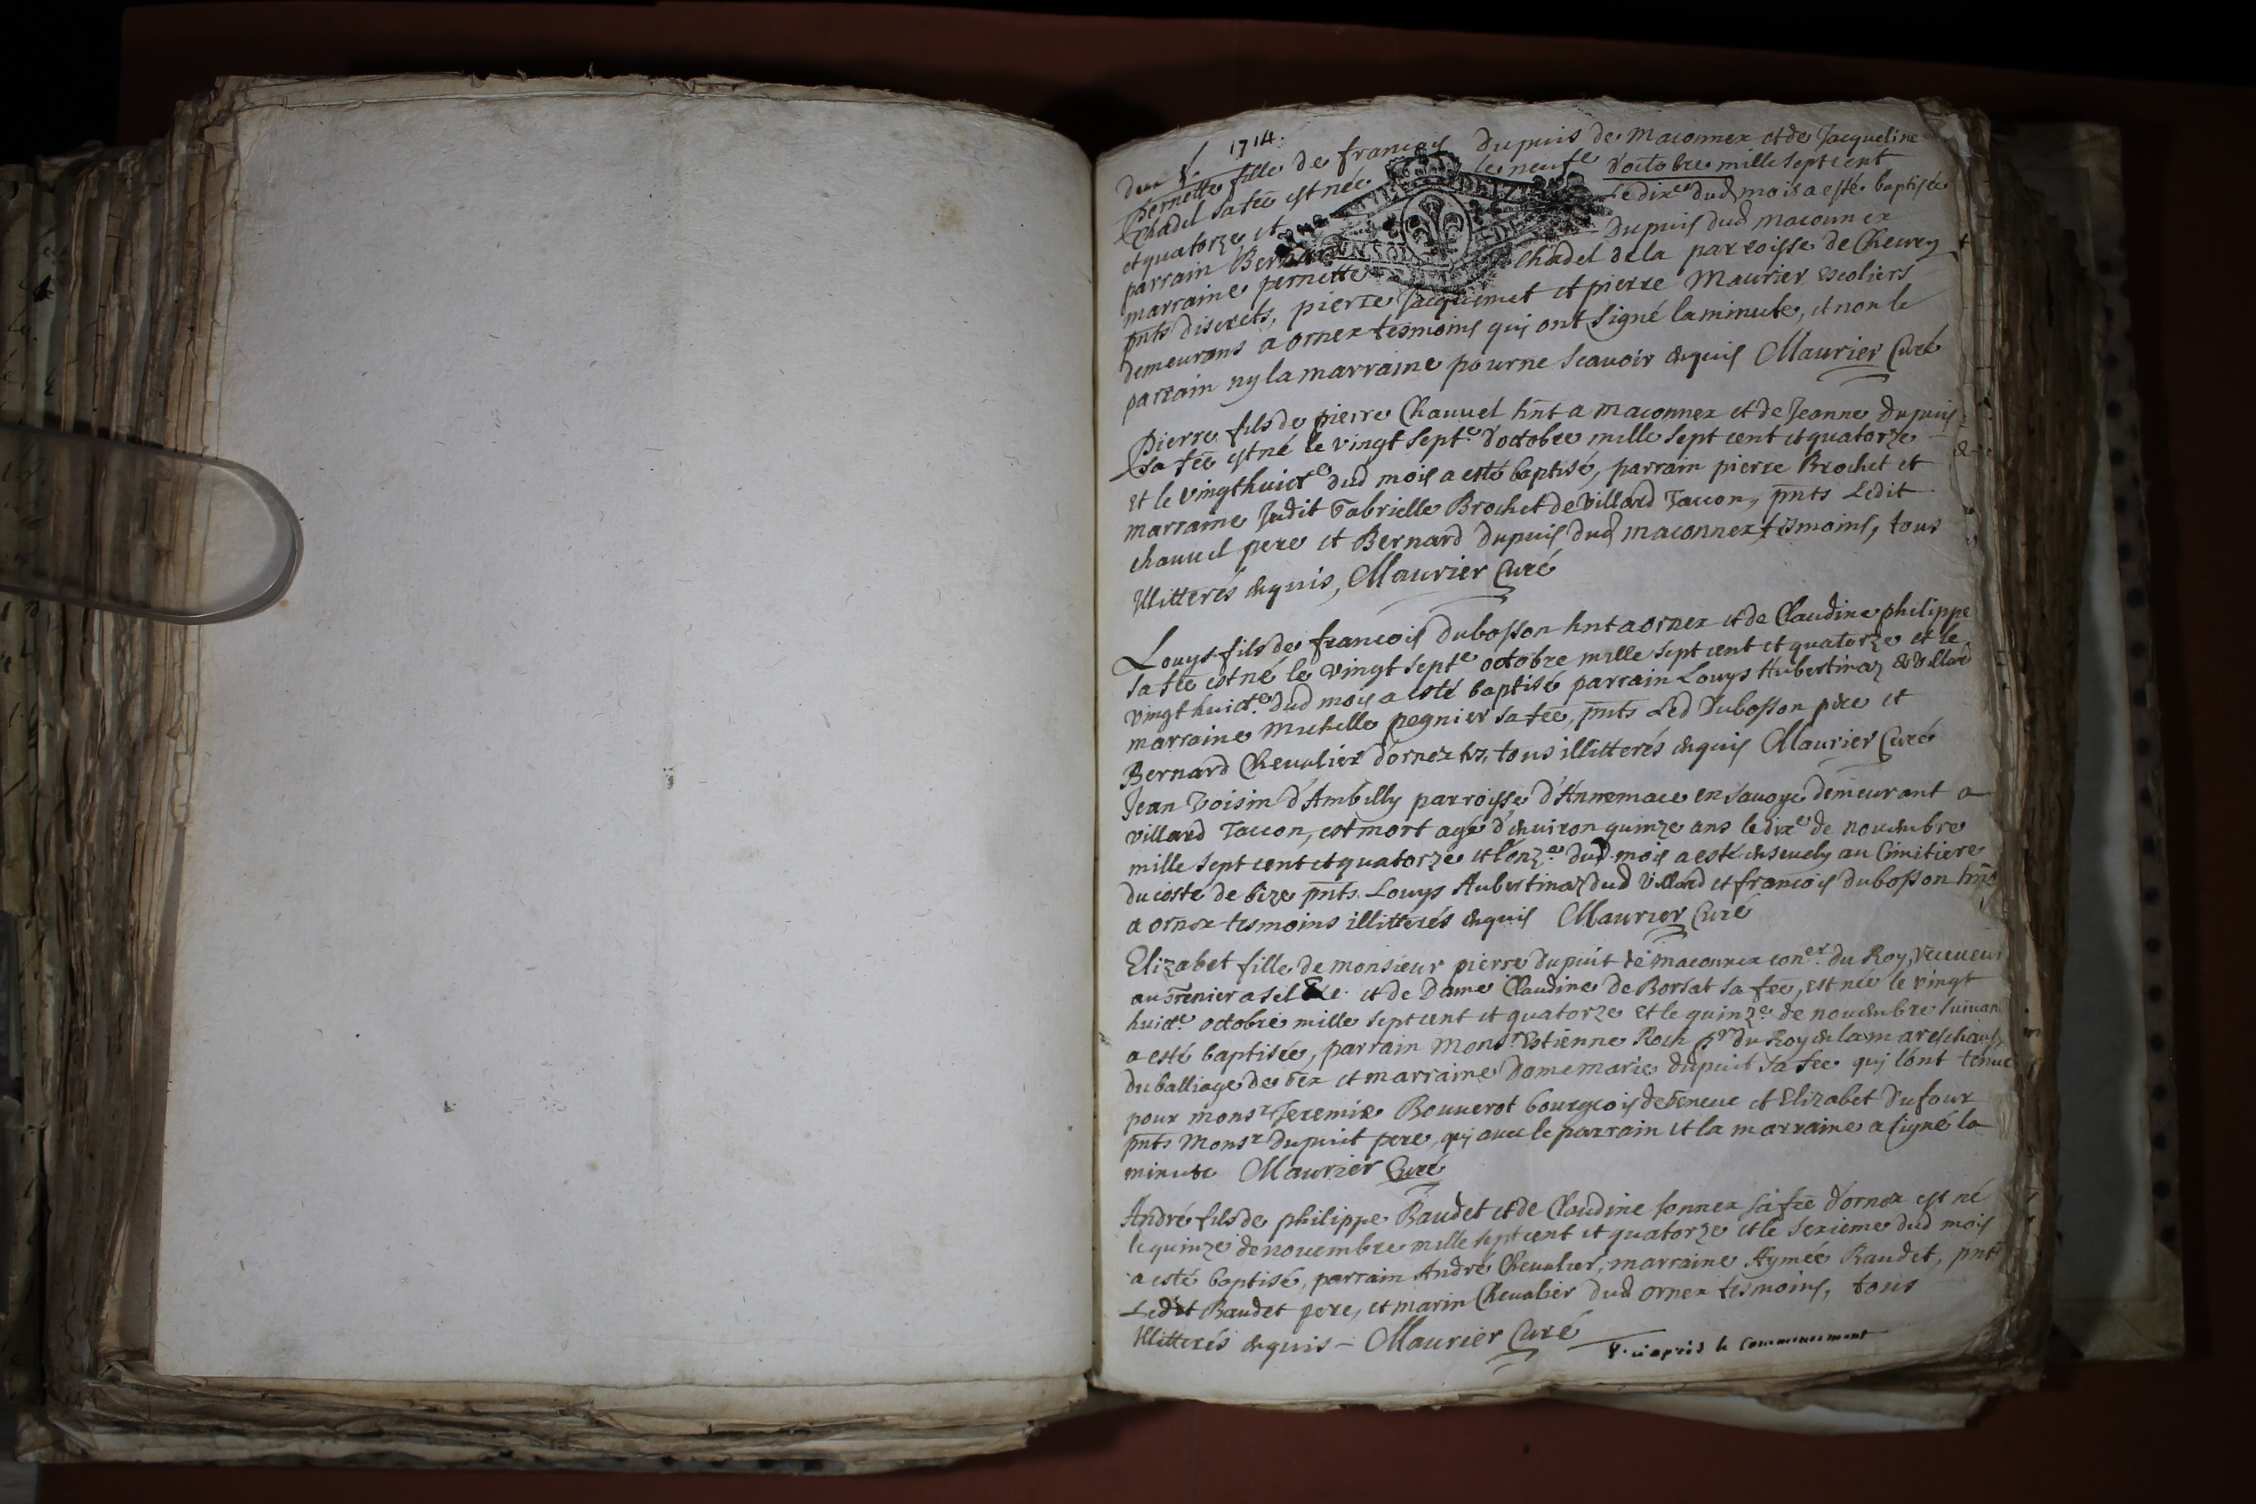 deux s. 1714.
Pernette fille de francois Dupuis de Maconnex et de Jacqueline
Chadel sa fee est née le neufe d'octobre mille sept cent
et quatorze et le dixe dud mois a esté baptisée
parrain Bernard Dupuis dud maconnex
marraine pernette Chadel de la parroisse de Cheury
pnts discrets, pierre Jacquemet et pierre Maurier escoliers
demeurans a ornex tesmoins qui ont signé la minute, et non le
parrain ny la marraine pour ne scavoir enquis Maurier Curé
Pierre fils de pierre Chauuel hnt a maconnex et de Jeanne dupuis
sa fee est né le vingt septe d'octobre mille sept cent et quatorze
et le vingthuicte dud mois a esté baptisé, parrain pierre Brochet et
marraine Judit Gabrielle Brochet de Villard Taccon, pnts Ledit
chauuel pere et Bernard Dupuis dud maconnex tesmoins, tous
illitterés enquis, Maurier Curé
Louys fils de francois Dubosson hnt a ornex et de Claudine philippe
sa fee est né le vingt septe octobre mille sept cent et quatorze et le
vingt huicte dud mois a esté baptisé parrain Louys Hubertinaz de Villard
marraine Michelle pegnier sa fee, pnts Led Dubosson pere et
Bernard Chevalier d'ornex ts, tous illitterés enquis Maurier Curé
Jean Voisin d'Ambilly parroisse d'Annemace en Savoye demeurant a
villard Taccon, est mort agé d'enuiron quinze ans le dixe de nouembre
mille sept cent et quatorze et l'onze dud mois a esté enseuely au Cimitiere
du costé de bize pnts. Louys Hubertinaz dud Villard et francois dubosson hnt
a ornex tesmoins illitterés enquis Maurier Curé
Elizabet fille de monsieur pierre dupuit de maconnex coner du Roy, receueur
au Grenier a sel et de Dame Claudine de Borsat sa fee, est née le vingt
huicte octobre mille sept cent et quatorze et le quinze de nouembre suiuant
a esté baptisée, parrain Monsr Estienne Roch pr du Roy en la mareschausse
du balliage de Gex et marraine Dame marie dupuit sa fee qui l'ont tenue
pour monsr Jeremie Bouuerot bourgeois de Geneue et Elizabet Dufour
pnts Monsr Dupuit pere, qui auec le parrain et la marraine a signé la
minute Maurier Curé
André fils de philippe Baudet et de Claudine sonnex sa fee d'ornex est né
le quinze de nouembre mille sept cent et quatorze et le sezieme dud mois
a esté baptisé, parrain André Chevalier, marraine Aymée Baudet, pnts
Ledit Baudet pere, et marin Chevalier dud ornex tesmoins, tous
illitterés enquis - Maurier Curé
V. ci après le commencement